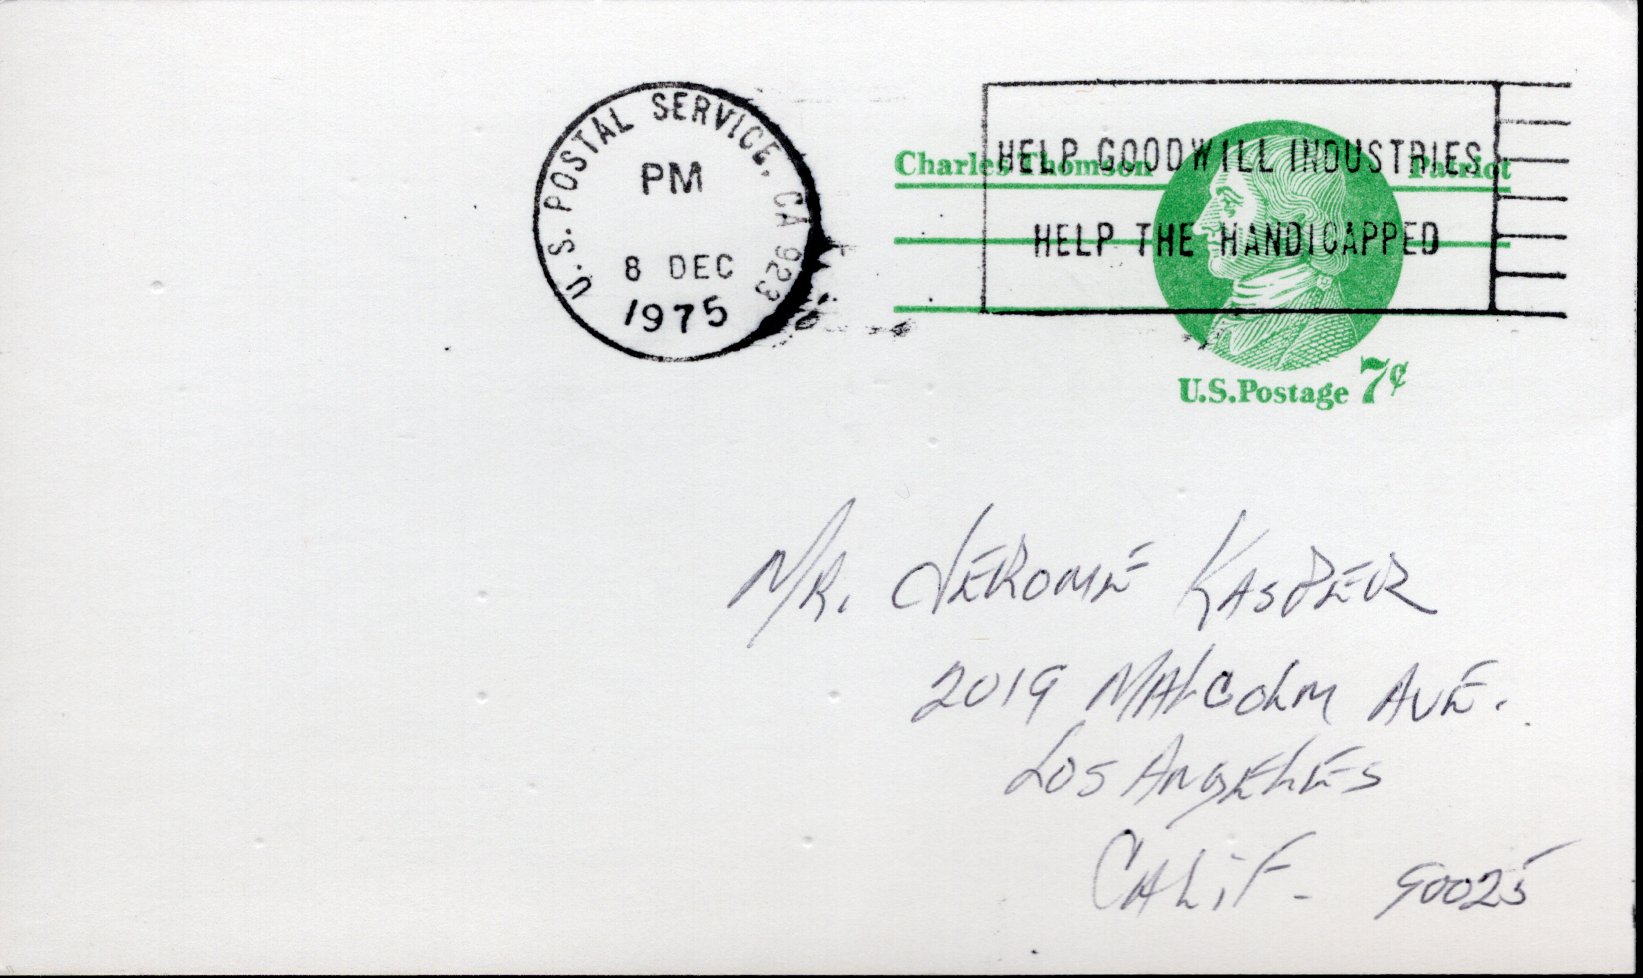 U.S. POSTAL SERVICE, CA 923
PM
8 DEC
1975
HELP GOODWILL INDUSTRIES
HELP THE HANDICAPPED
Charles Thomson Patriot
U.S. Postage 7¢
MR. JEROME KASPER
2019 MALCOLM AVE.
LOS ANGELES
CALIF. 90025